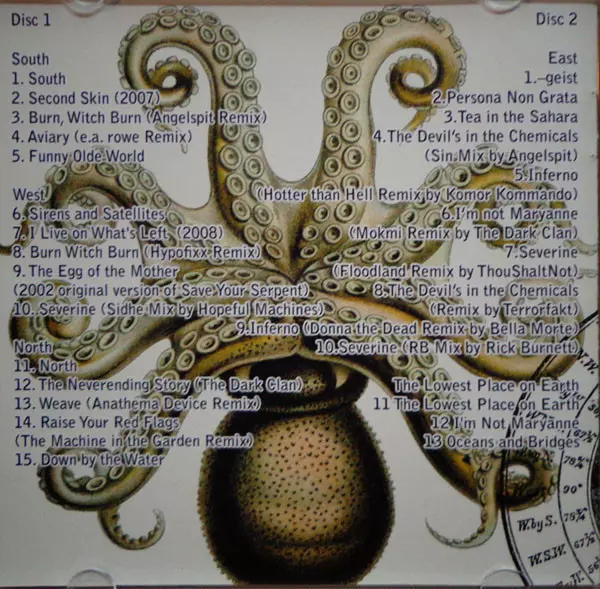 Disc 1
South
1. South
2. Second Skin (2007)
3. Burn, Witch Burn (Angelspit Remix)
4. Aviary (e.a. rowe Remix)
5. Funny Olde World
West
6. Sirens and Satellites
7. I Live on What's Left, (2008)
8. Burn Witch Burn (Hypofixx Remix)
9. The Egg of the Mother
(2002 original version of Save Your Serpent)
10. Severine (Sidhe Mix by Hopeful Machines)
North
11. North
12. The Neverending Story (The Dark Clan)
13. Weave (Anathema Device Remix)
14. Raise Your Red Flags
(The Machine in the Garden Remix)
15. Down by the Water
Disc 2
East
1.-geist
2.Persona Non Grata
3.Tea in the Sahara
4.The Devil's in the Chemicals
(Sin Mix by Angelspit)
5.Inferno
(Hotter than Hell Remix by Komor Kommando)
6.I'm not Maryanne
(Mokmi Remix by The Dark Clan)
7.Severine
(Floodland Remix by ThouShaltNot)
8.The Devil's in the Chemicals
(Remix by Terrorfakt)
9.Inferno (Donna the Dead Remix by Bella Morte)
10.Severine (RB Mix by Rick Burnett)
The Lowest Place on Earth
11 The Lowest Place on Earth
12 I'm Not Maryanne
13 Oceans and Bridges
78¾°
90°
W.by S. 78¾
W.S.W. 67½